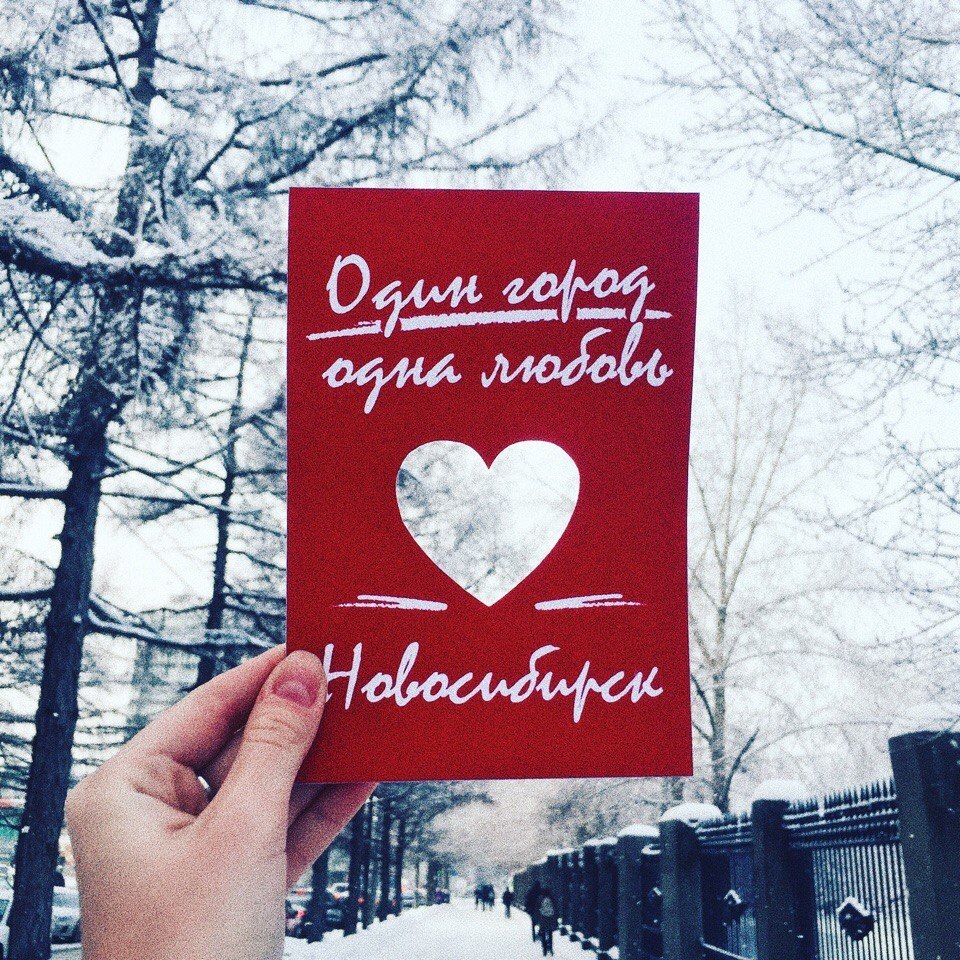 Один город
одна любовь
Новосибирск